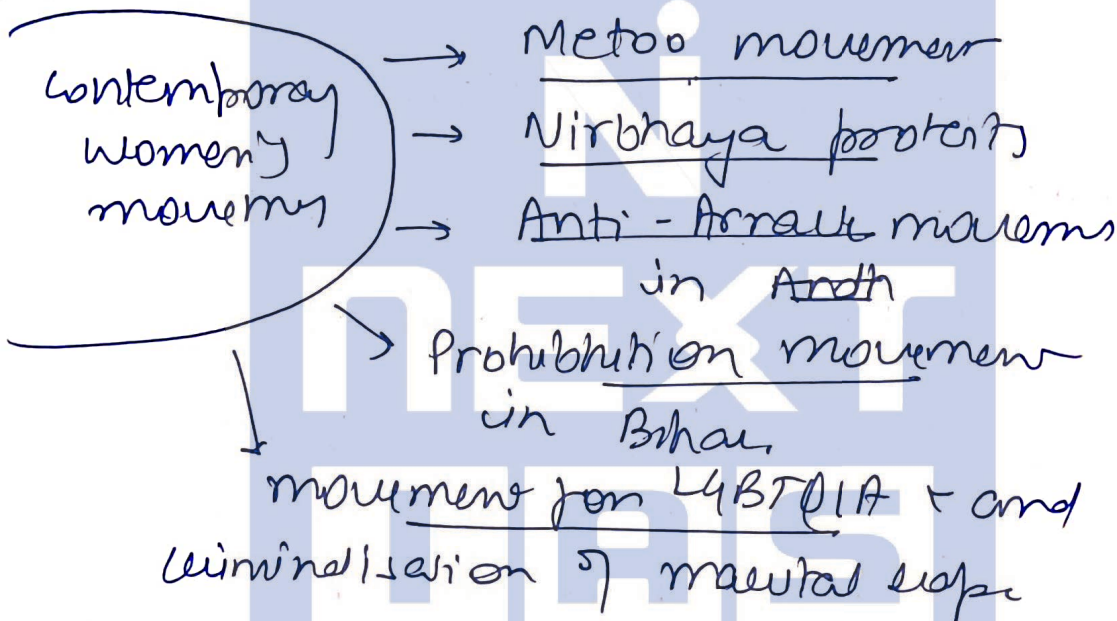 contemporary
women's
movemns
→ Metoo movement
→ Nirbhaya protests
→ Anti-Arrack movems
in Andh
→ Prohibhition movement
in Bihar
movement for LGBTQIA + and
criminalisation of marital rape
NEXT
IAS